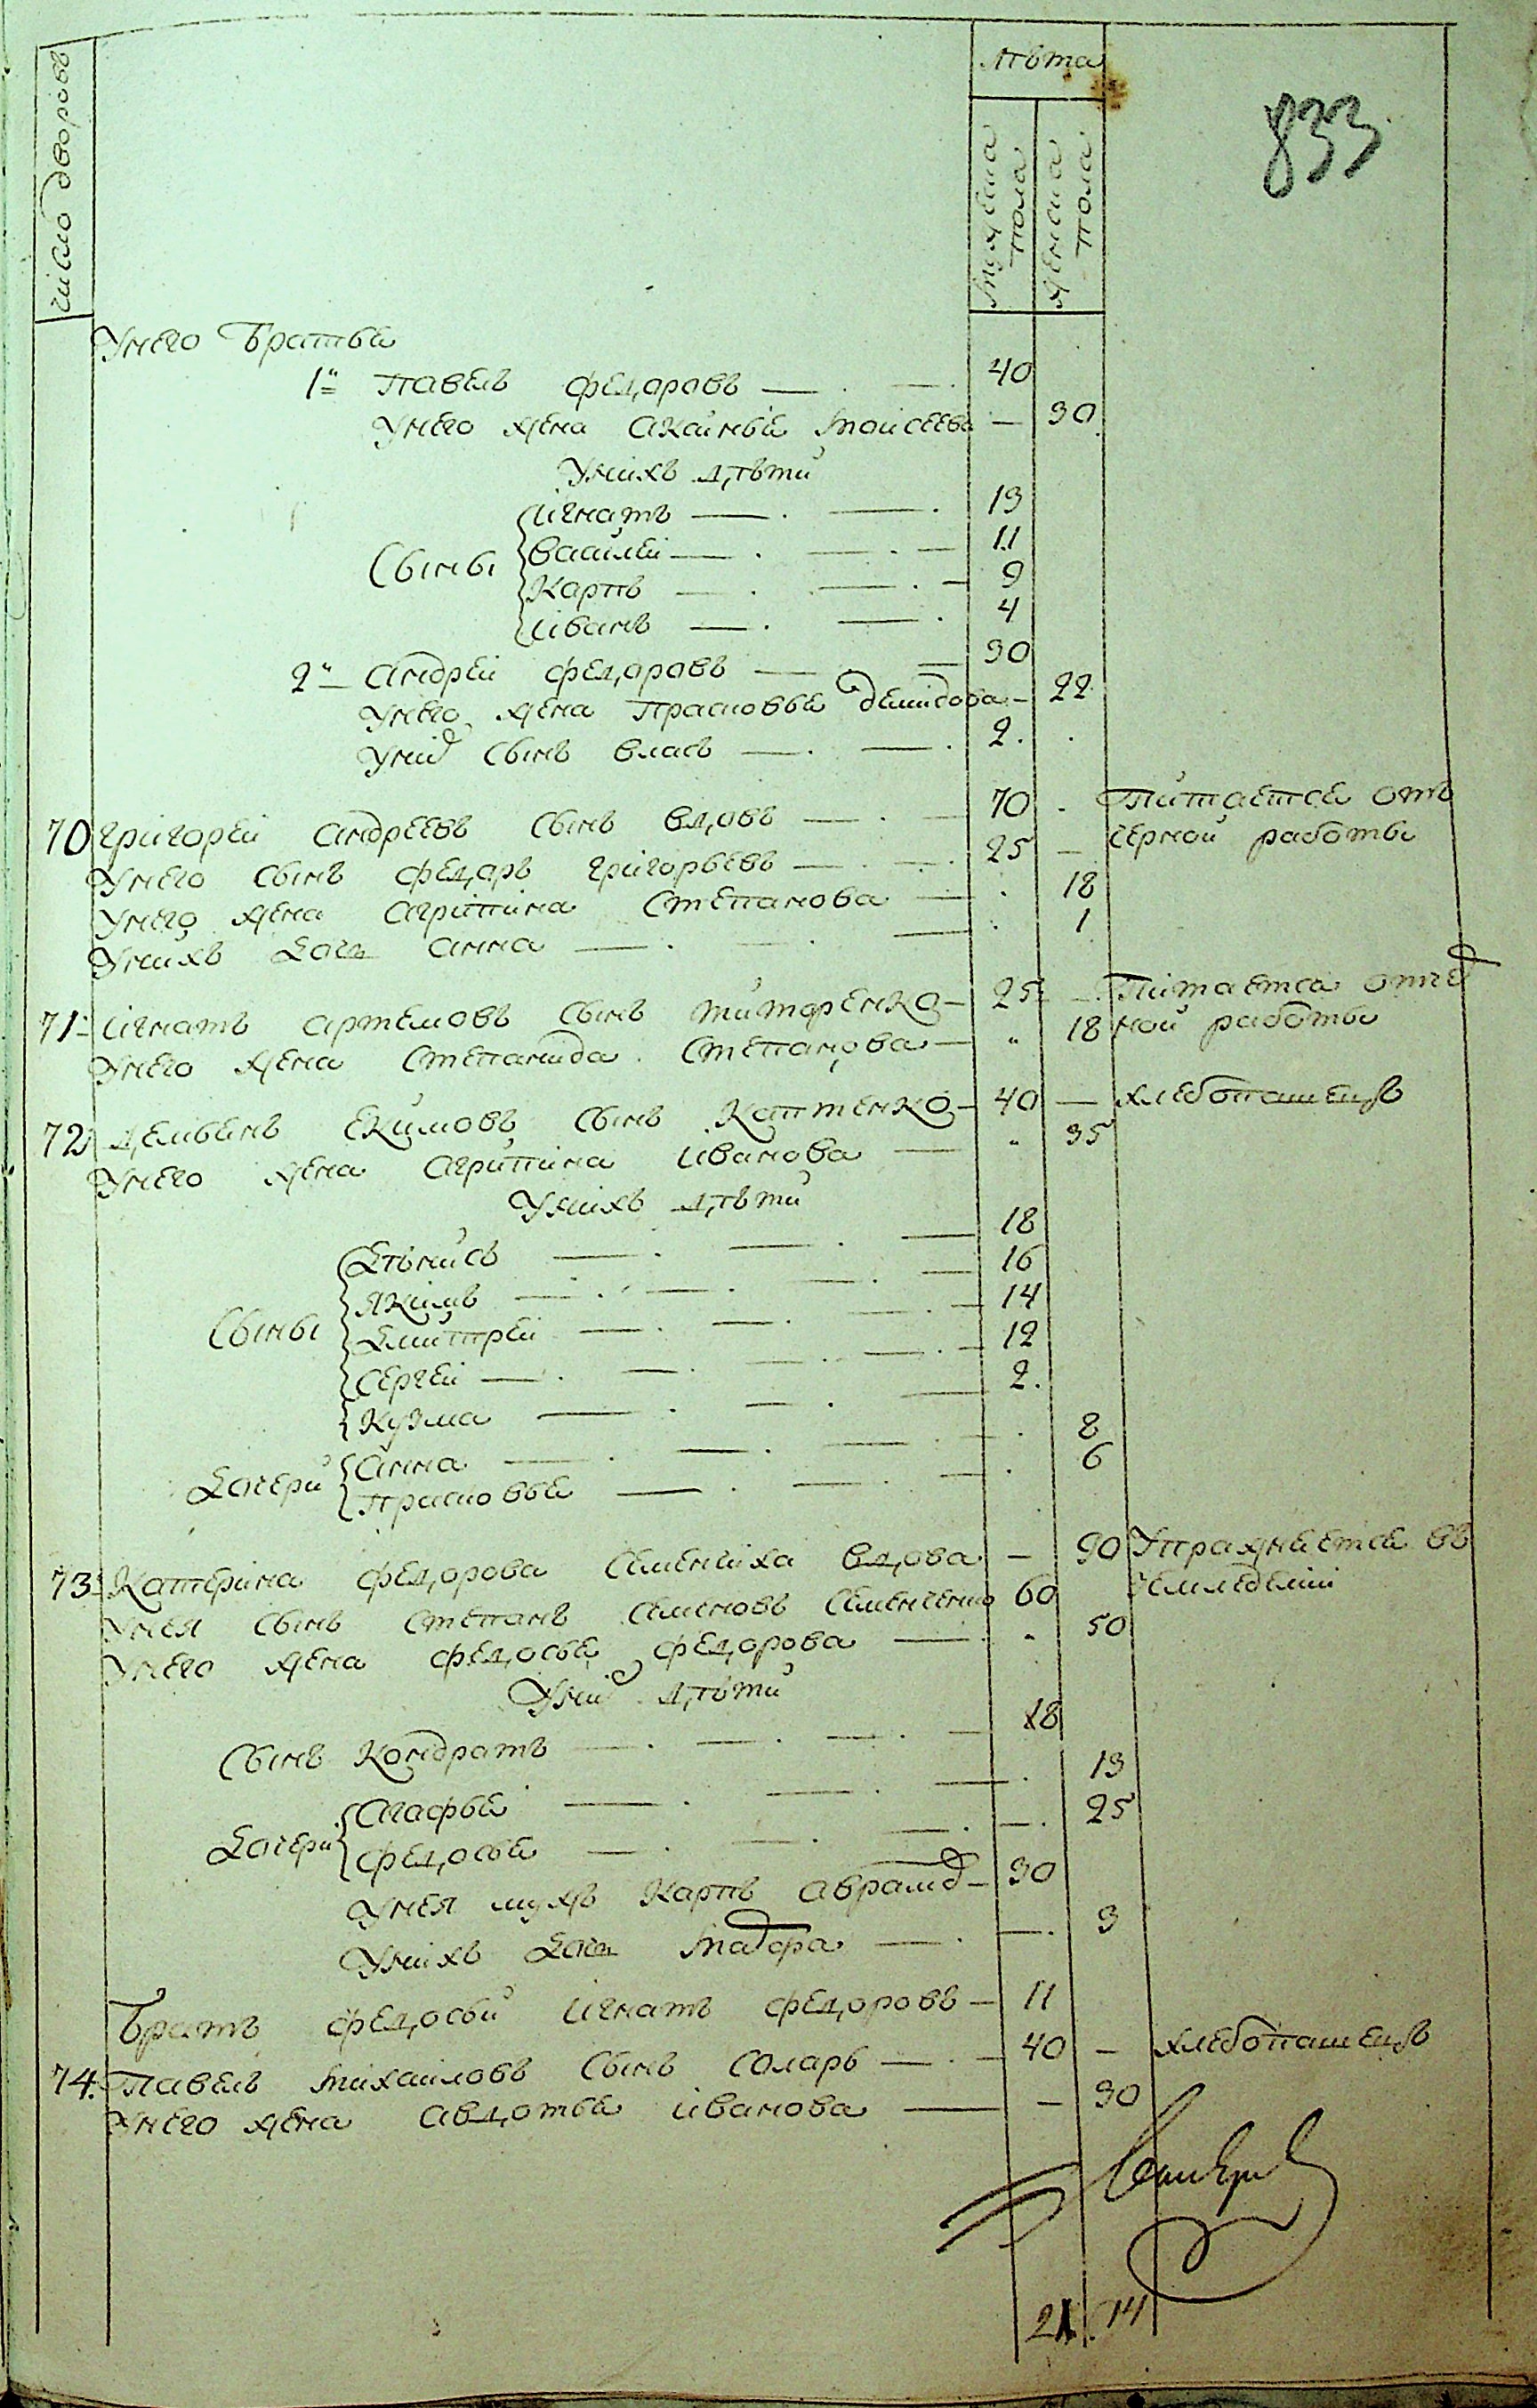 число дворовъ
лѣта
мужска пола
женска пола
833
Унего Братья
1й Павелъ федоровъ 40
Унего жена Акилина Моисеева 30
Унихъ дѣти
Сыны
Игнатъ 13
Василей 11
Карпъ 9
Иванъ 4
2й Андрей федоровъ 30
Унего жена Прасковья демидова 22
Унид сынъ власъ 2
70 григорей андреевъ сынъ вдовъ 70 Питается отъ
Унего сынъ федаръ григорьевъ 25 черной работы
Унего жена агрипина Степанова 18
Унихъ дочь анна 1
71 Игнатъ артемовъ сынъ 25 Питается отчер
Унего жена Степанида Степанова 18 ной работы
72 демьянъ Екимовъ сынъ Каптенко 40 хлебопашецъ
Унего жена агрипина иванова 35
Унихъ дѣти
Сыны
Дѣнисъ 18
Якимъ 16
Дмитрей 14
Сергей 12
Кузма 2
Дочери
анна 8
прасковья 6
73 Катерина федорова Семенчиха вдова 90 Упражняется въ
Унея сынъ степанъ семеновъ Семенченко 60 земледелии
Унего жена федосья федорова 50
Уних дѣти
Сынъ Кондратъ 18
Дочери
Агафья 13
федосья 25
Унея мужъ Карпъ аврамов 30
Унихъ дочь Мадора 3
Братъ федосьи Игнатъ федоровъ 11
74 Павелъ михаиловъ сынъ Соларь 40 хлебопашецъ
Унего жена авдотья иванова 30
21 14